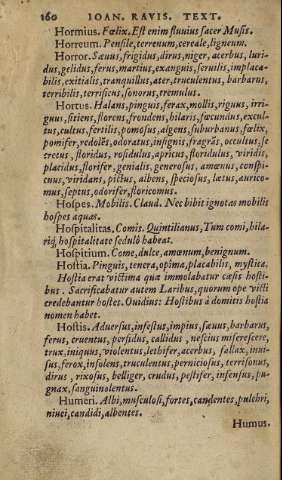 160 IOAN. RAVIS. TEXT.
Hormius. Fœlix. Est enim fluuius sacer Musis.
Horreum. Pensile, terrenum, cereale, ligneum.
Horror. Sæuus, frigidus, dirus, niger, acerbus, luri-
dus, gelidus, ferus, martius, exanguis, seruilis, implaca-
bilis, exitialis, tranquillus, ater, truculentus, barbarus,
terribilis, terrificus, sonorus, tremulus.
Hortus. Halans, pinguis, ferax, mollis, riguus, irri-
guus, sitiens, florens, frondens, hilaris, fœcundus, excul-
tus, cultus, fertilis, pomosus, algens, suburbanus, fœlix,
pomifer, redolēs, odoratus, insignis, fragrās, occultus, se
cretus, floridus, rosidulus, apricus, floridulus, viridis,
placidus, florifer, genialis, generosus, amœnus, conspi-
cuus, viridans, pictus, albens, speciosus, lætus, aurico-
mus, septus, odorifer, floricomus.
Hospes. Mobilis. Claud. Nec bibit ignotas mobilis
hospes aquas.
Hospitalitas. Comis. Quintilianus, Tum comi, hila-
riq́; hospitalitate sedulò habeat.
Hospitium. Come, dulce, amœnum, benignum.
Hostia. Pinguis, tenera, opima, placabilis, mystica.
Hostia erat victima quæ immolabatur cæsis hosti-
bus. Sacrificabatur autem Laribus, quorum ope victi
credebantur hostes. Ouidius: Hostibus à domitis hostia
nomen habet.
Hostis. Aduersus, infestus, impius, sæuus, barbarus,
ferus, cruentus, perfidus, callidus, nescius miserescere,
trux, iniquus, violentus, lethifer, acerbus, fallax, inui-
sus, ferox, insolens, truculentus, perniciosus, terrisonus,
dirus, rixosus, belliger, crudus, pestifer, infensus, pu-
gnax, sanguinolentus.
Humeri. Albi, musculosi, fortes, candentes, pulchri,
niuei, candidi, albentes.
Humus.